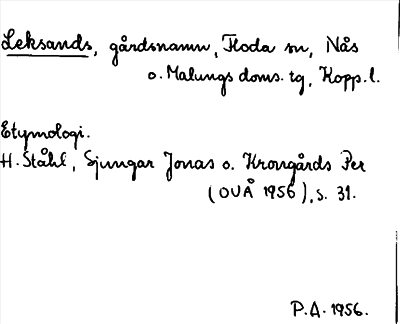 Leksands, gårdsnamn, Floda sn, Nås
o. Malungs doms. tg, Kopp. l.
Etymologi.
H. Ståhl, Sjungar Jonas o. Krongårds Per
(OUÅ 1956), s. 31.
P.A. 1956.